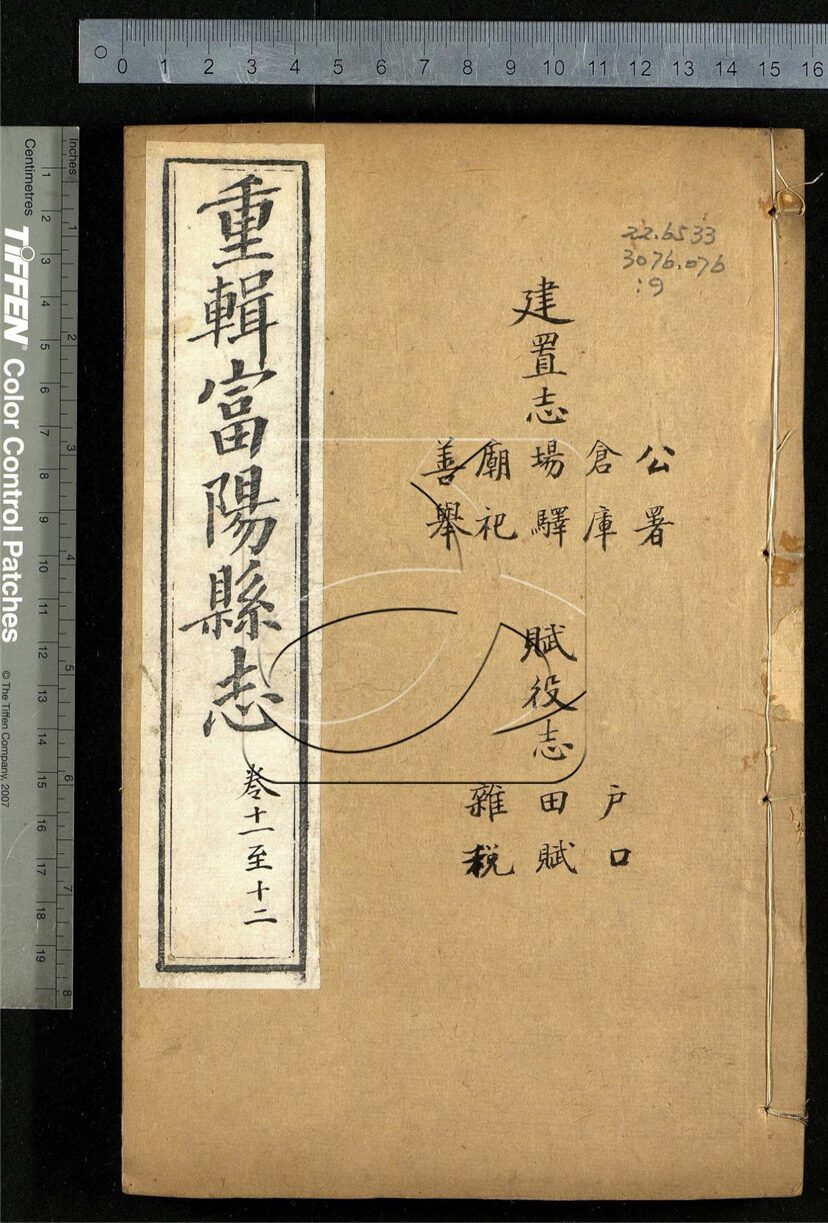 0 1 2 3 4 5 6 7 8 9 10 11 12 13 14 15 16
Inches
Centimetres
1 2 3 4 5 6 7 8 9 10 11 12 13 14 15 16 17 18 19
1 2 3 4 5 6 7 8
TIFFEN® Color Control Patches
© The Tiffen Company, 2007
22.6533
3076.076
:9
建置志
公署
倉庫
場驛
廟祀
善舉
賦役志
户口
田賦
雜税
重輯富陽縣志
卷十一至十二